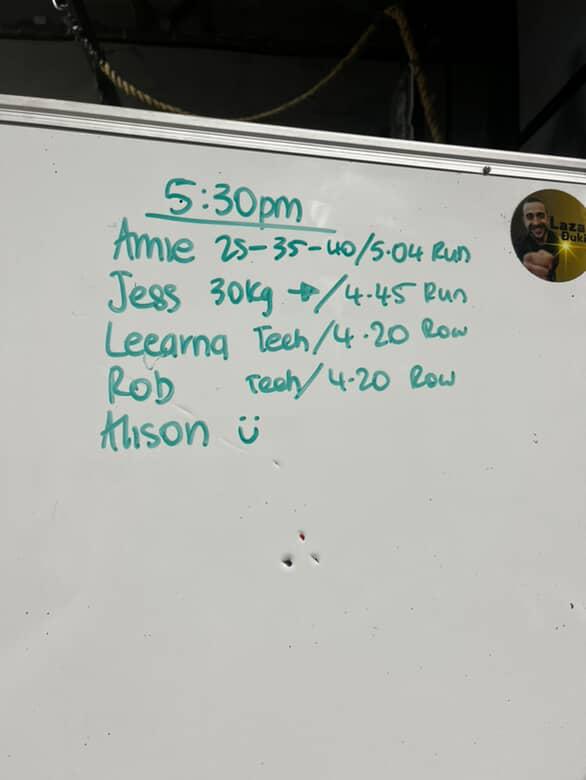 5:30pm
Amie 25-35-40/5.04 Run
Jess 30kg → /4.45 Run
Leearna Tech/4.20 Row
Rob Tech/4.20 Row
Alison Ü
Laza
Đuki